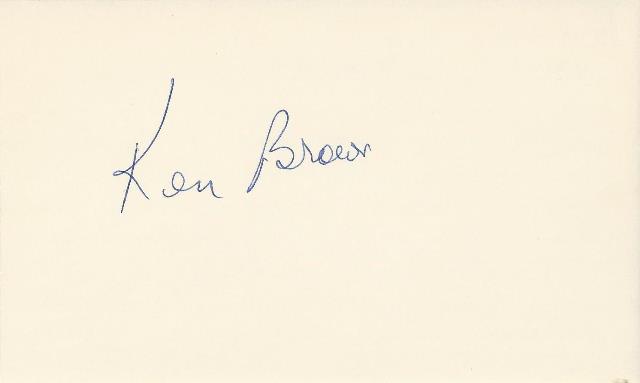 Ken Brown